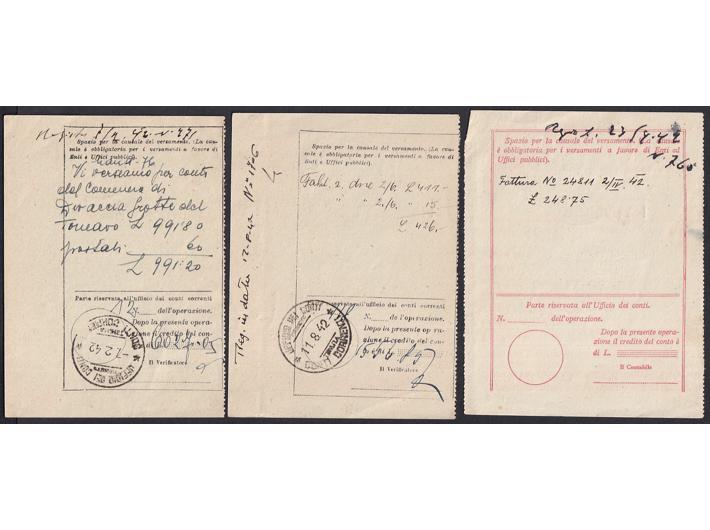 Spazio per la causale del versamento. (La cau-
sale è obbligatoria per i versamenti a favore di
Enti e Uffici pubblici).
Vi versiamo per conto
del Commune di
Divaccia Grotte del
Timavo £ 991·80
postali 60
£ 991:20
Parte riservata all'ufficio dei conti correnti
N. dell'operazione.
Dopo la presente opera-
zione il credito del conto
è di
Il Verificatore
UFFICIO DEI CONTI CORRENTI
-7.2.42
Reg. in data 12-8-42 No 186
Spazio per la causale del versamento. (La cau-
sale è obbligatoria per i versamenti a favore di
Enti e Uffici pubblici).
Fatt. 2. dvoe 2/6. £ 411.-
" " 2./6. " 15.
£ 426.-
Parte riservata all'ufficio dei conti correnti
N. dell'operazione.
Dopo la presente opera-
zione il credito del conto
è di
Il Verificatore
11.8.42
Reg. 23/8.42
N. 765
Spazio per la causale del versamento. (La causale
è obbligatoria per i versamenti a favore di Enti ed
Uffici pubblici).
Fattura No 24811 2/IV. 42.
£ 248·75
Parte riservata all'Ufficio dei conti.
N. dell'operazione.
Dopo la presente opera-
zione il credito del conto è
di L.
Il Contabile